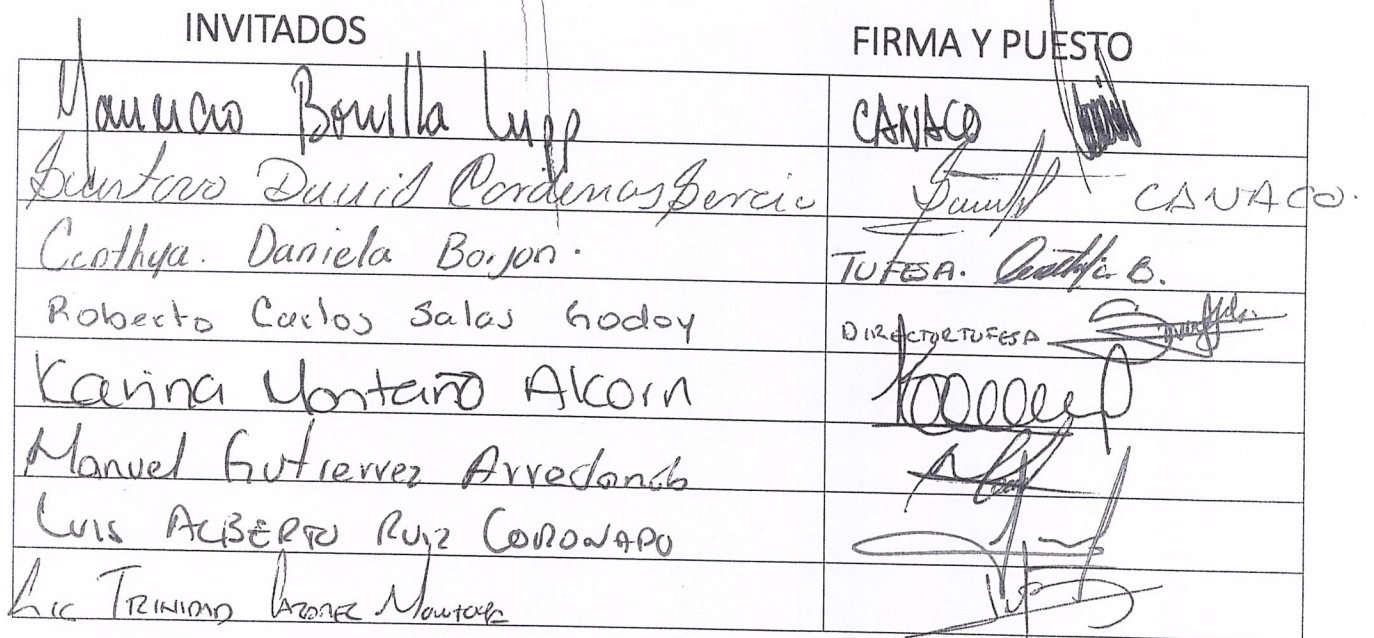 INVITADOS FIRMA Y PUESTO
Mauricio Bonilla Lupp CANACO
David Cardenas CANACO.
Daniela Borjon. TUFESA. B.
Roberto Carlos Salas Godoy DIRECTOR TUFESA
Karina Montaño Alcorn
Manuel Gutierrez Arredondo
Luis ALBERTO RUIZ CORONADO
Lic TRINIDAD Montoya